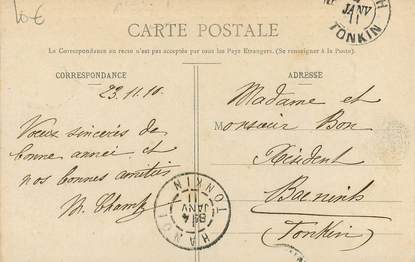 10€
CARTE POSTALE
La Correspondance au recto n'est pas acceptée par tous les Pays Etrangers. (Se renseigner à la Poste).
CORRESPONDANCE
ADRESSE
23.11.10.
Vœux sincères de
bonne année et
nos bonnes amitiés
Madame et
Monsieur Bon
Résident
Bacninh
(Tonkin)
JANV
11
TONKIN
HANOI
TONKIN
JANV
11